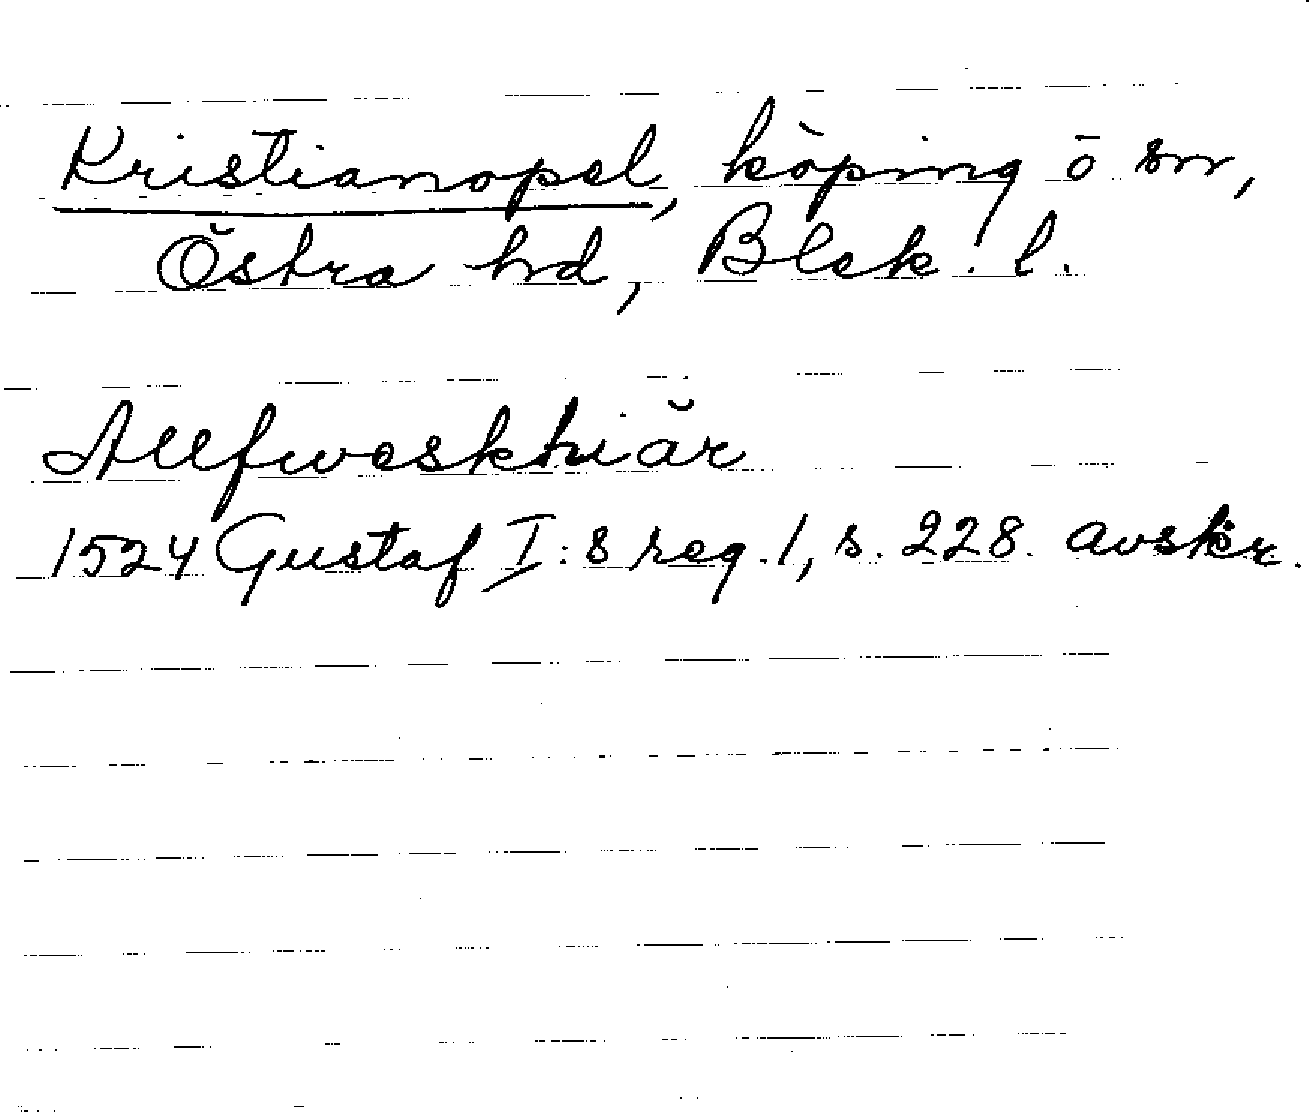 Kristianopel, köping o sn,
Östra hd, Blek. l.
1524 Gustaf I:s reg. 1, s. 228. avskr.